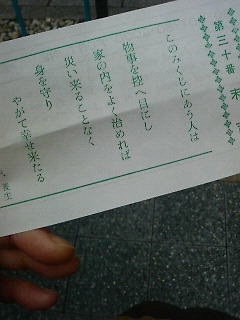 第三十番 末
このみくじにあう人は
物事を控へ目にし
家の内をよく治めれば
災い来ることなく
身を守り
やがて幸せ来たる